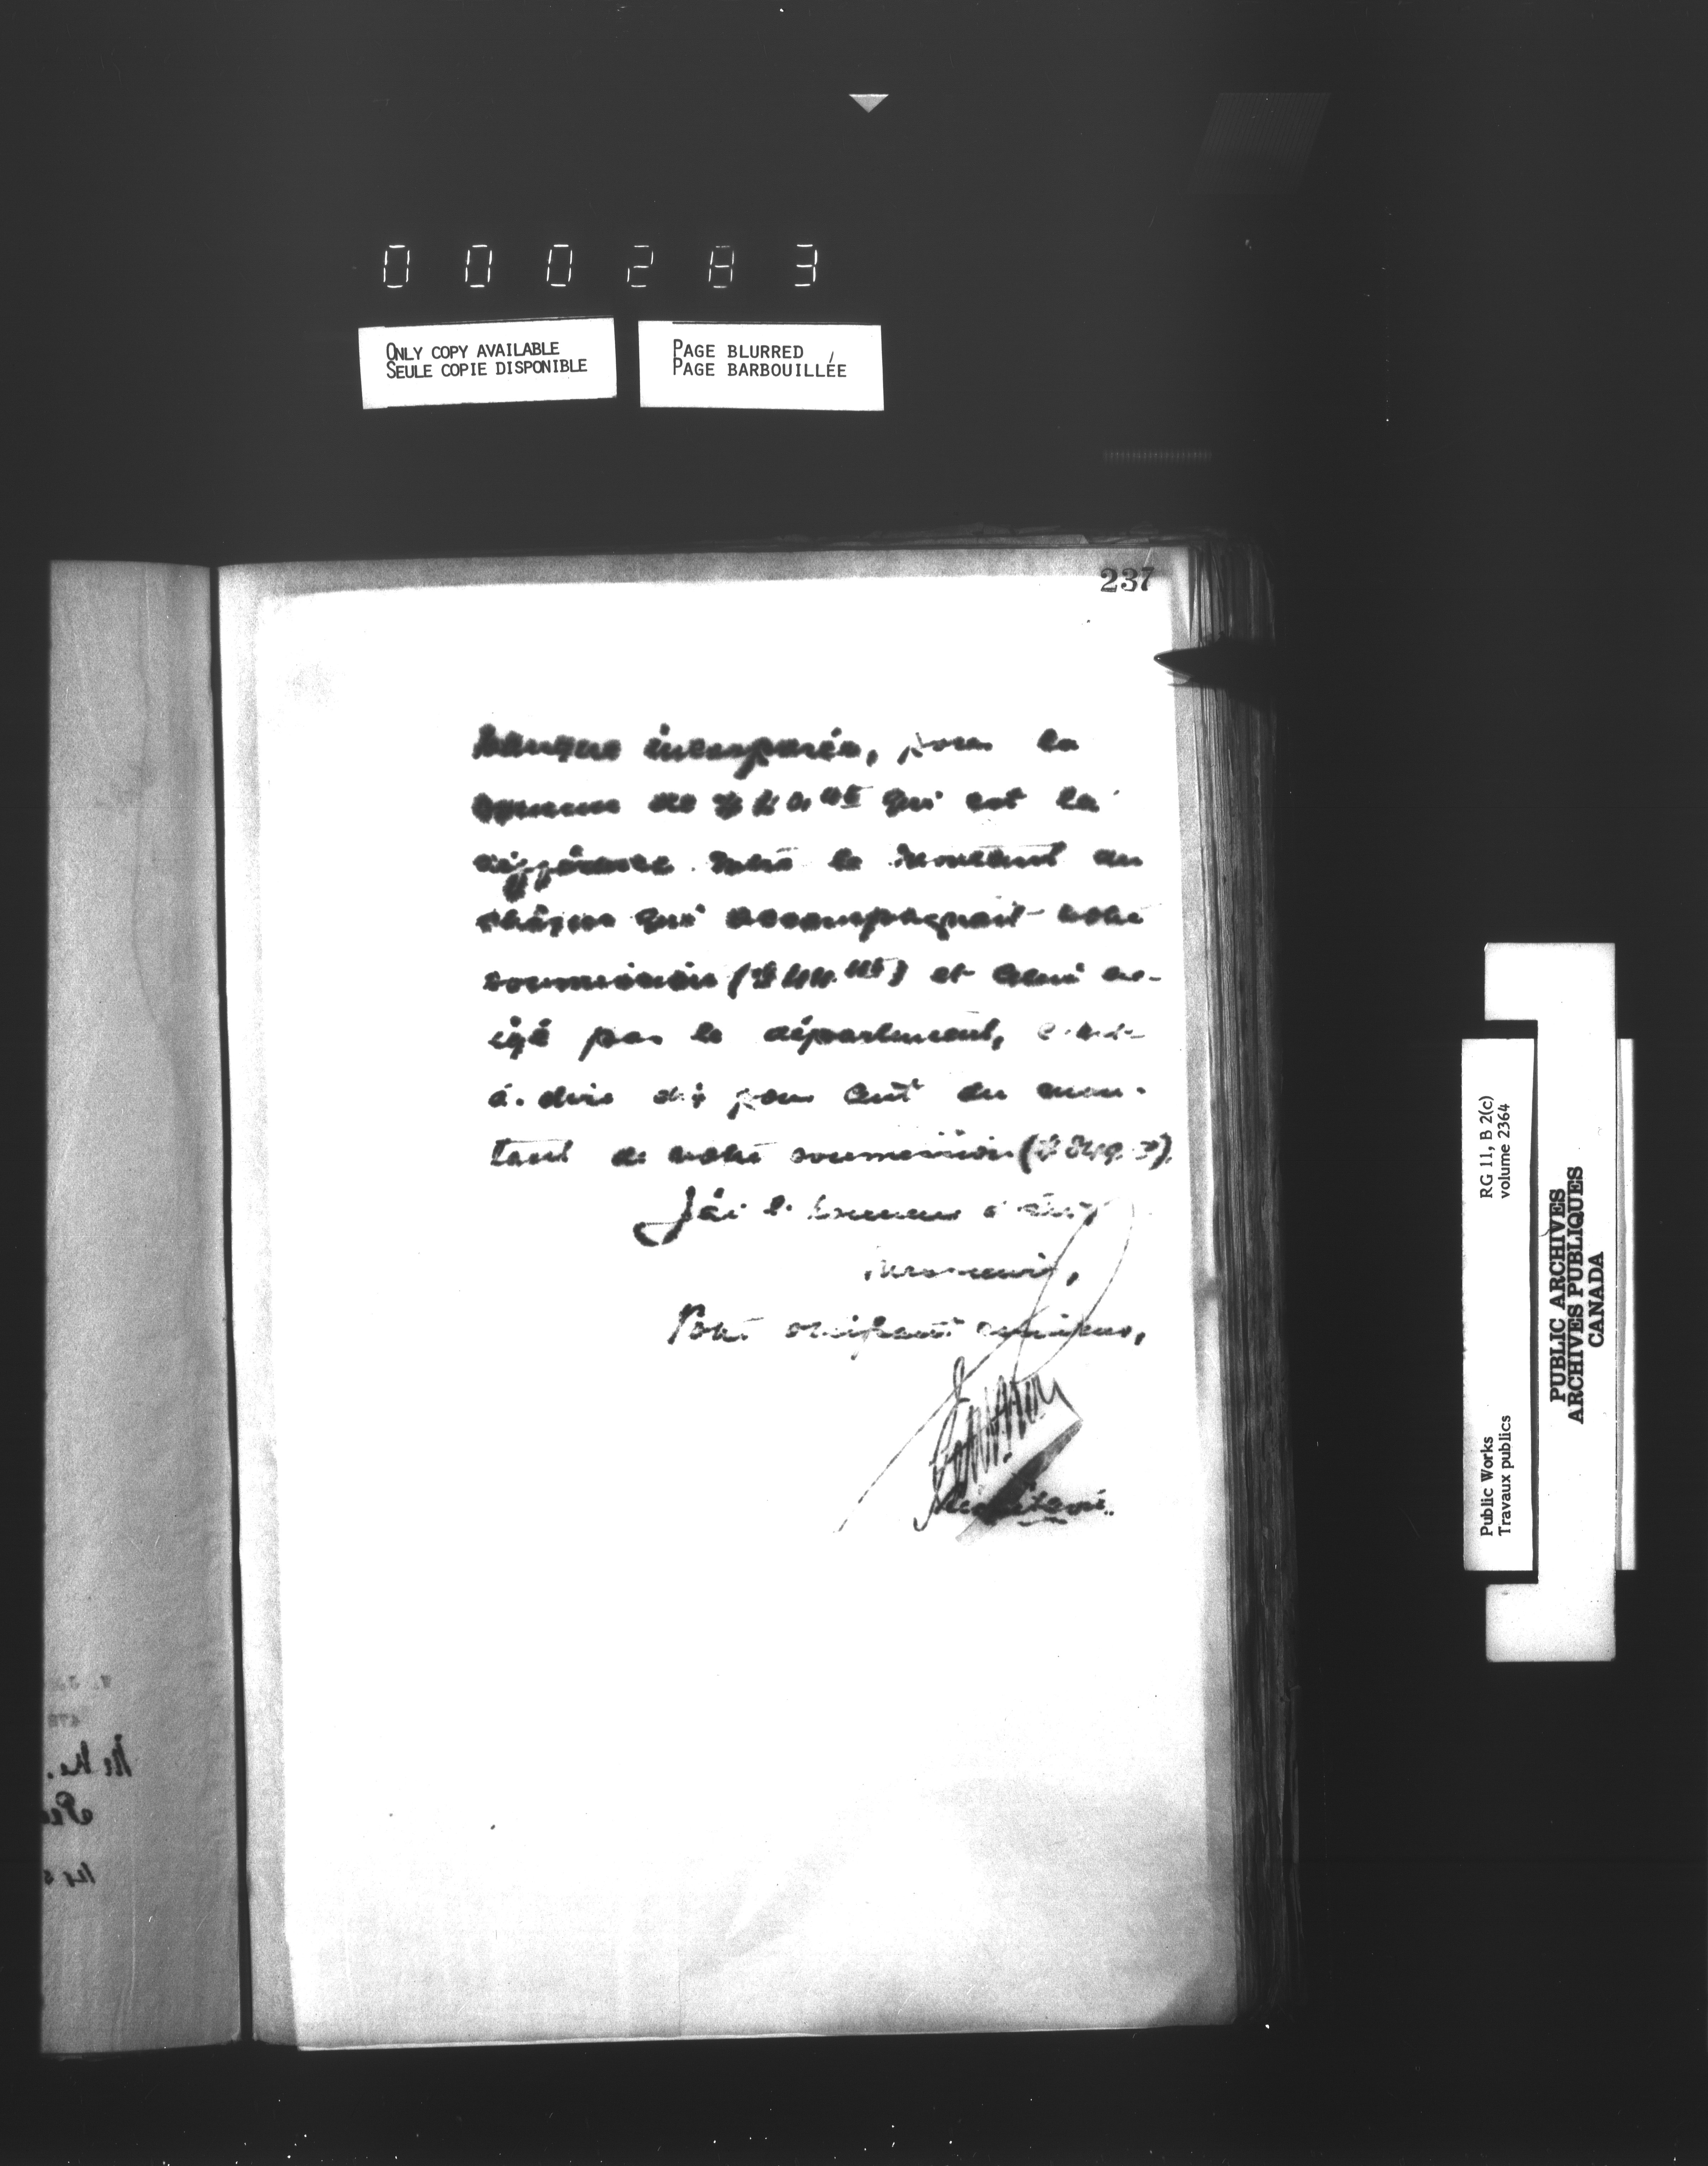 000283
ONLY COPY AVAILABLE
SEULE COPIE DISPONIBLE
PAGE BLURRED
PAGE BARBOUILLÉE
237
banque incorporée, pour la
somme de qui est la
différence entre le montant du
chèque qui accompagnait votre
soumission ( ) et celui ex-
igé par le département, c'est-
à-dire dix pour cent du mon-
tant de votre soumission ( ).
J'ai l'honneur d'être,
Messieurs,
Votre obéissant serviteur,
Secrétaire.
Public Works
Travaux publics
RG 11, B 2(c)
volume 2364
PUBLIC ARCHIVES
ARCHIVES PUBLIQUES
CANADA